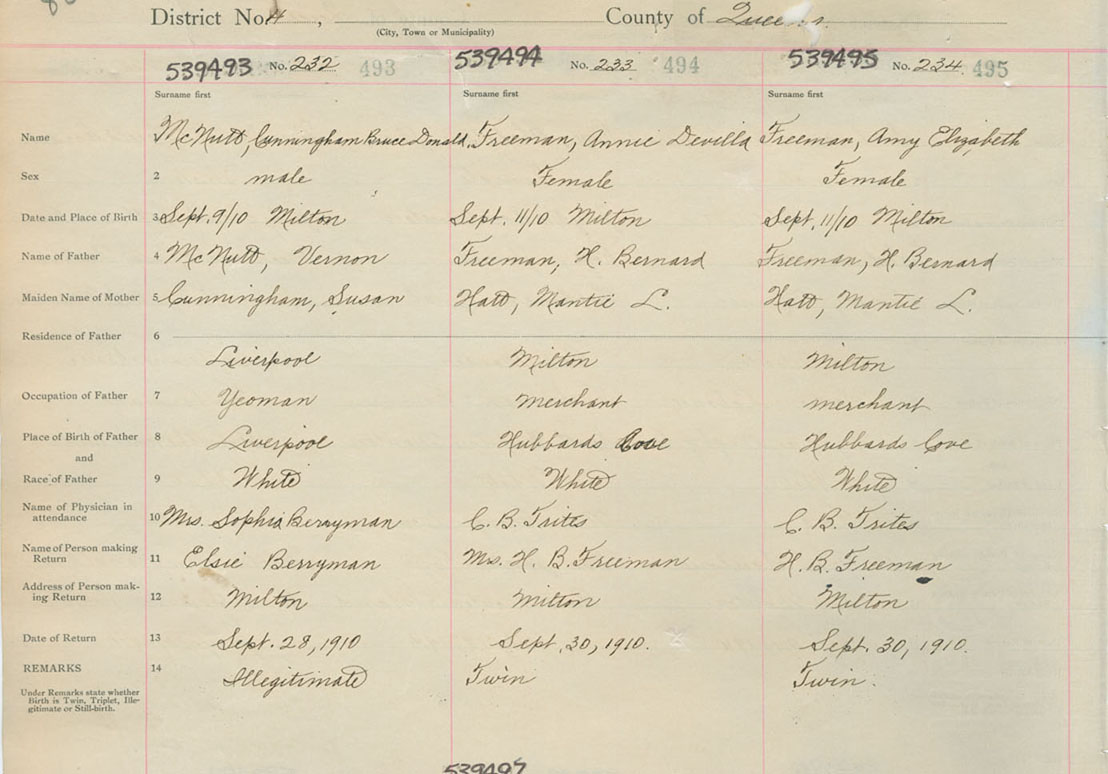 District No. 4, County of Queens
(City, Town or Municipality)
539493 No. 232 493 539494 No. 233 494 539495 No. 234 495
Surname first Surname first Surname first
Name McNutt, Cunningham Bruce Donald. Freeman, Annie Devilla Freeman, Amy Elizabeth
Sex 2 male Female Female
Date and Place of Birth 3 Sept. 9/10 Milton Sept. 11/10 Milton Sept. 11/10 Milton
Name of Father 4 McNutt, Vernon Freeman, H. Bernard Freeman, H. Bernard
Maiden Name of Mother 5 Cunningham, Susan Hatt, Mantie L. Hatt, Mantie L.
Residence of Father 6
Liverpool Milton Milton
Occupation of Father 7 Yeoman merchant merchant
Place of Birth of Father 8 Liverpool Hubbards Cove Hubbards Cove
and
Race of Father 9 White White White
Name of Physician in
attendance 10 Mrs. Sophia Berryman C. B. Trites C. B. Trites
Name of Person making
Return 11 Elsie Berryman Mrs. H. B. Freeman H. B. Freeman
Address of Person mak-
ing Return 12 Milton Milton Milton
Date of Return 13 Sept. 28, 1910 Sept. 30, 1910. Sept. 30, 1910.
REMARKS 14 Illegitimate Twin Twin.
Under Remarks state whether
Birth is Twin, Triplet, Ille-
gitimate or Still-birth.
539497